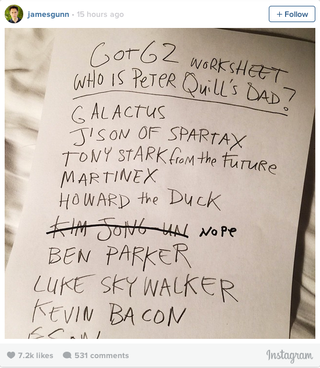 jamesgunn • 15 hours ago
+ Follow
GotG2 WORKSHEET
WHO IS PETER QUILL'S DAD?
GALACTUS
J'SON OF SPARTAX
TONY STARK from the FUTURE
MARTINEX
HOWARD the DUCK
KIM JONG UN NOPE
BEN PARKER
LUKE SKYWALKER
KEVIN BACON
7.2k likes 531 comments Instagram